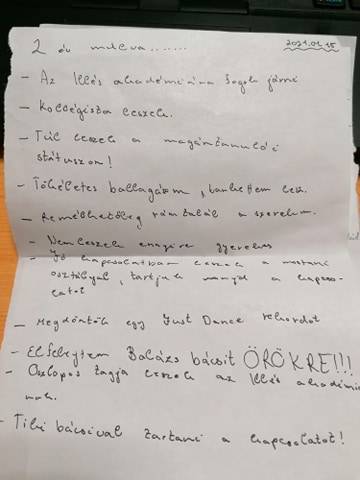 2 év mulva.......
2021.01.15
- Az Illés akadémiára fogok járni
- Kollégista leszek.
- Túl leszek a magántanulói
státuszon!
- Tökéletes ballagásom, bankettem lesz.
- Remélhetőleg rám talál a szerelem.
- Nem leszek ennyire gyerekes
- Jó kapcsolatban leszek a mostani
osztályal, tartjuk majd a kapcso-
latot
- Megdöntök egy Just Dance rekordot
- Elfelejtem Balázs bácsit ÖRÖKRE!!!
- Oszlopos tagja leszek az Illés akadémiá
nak.
- Tibi bácsival tartani a kapcsolatot!